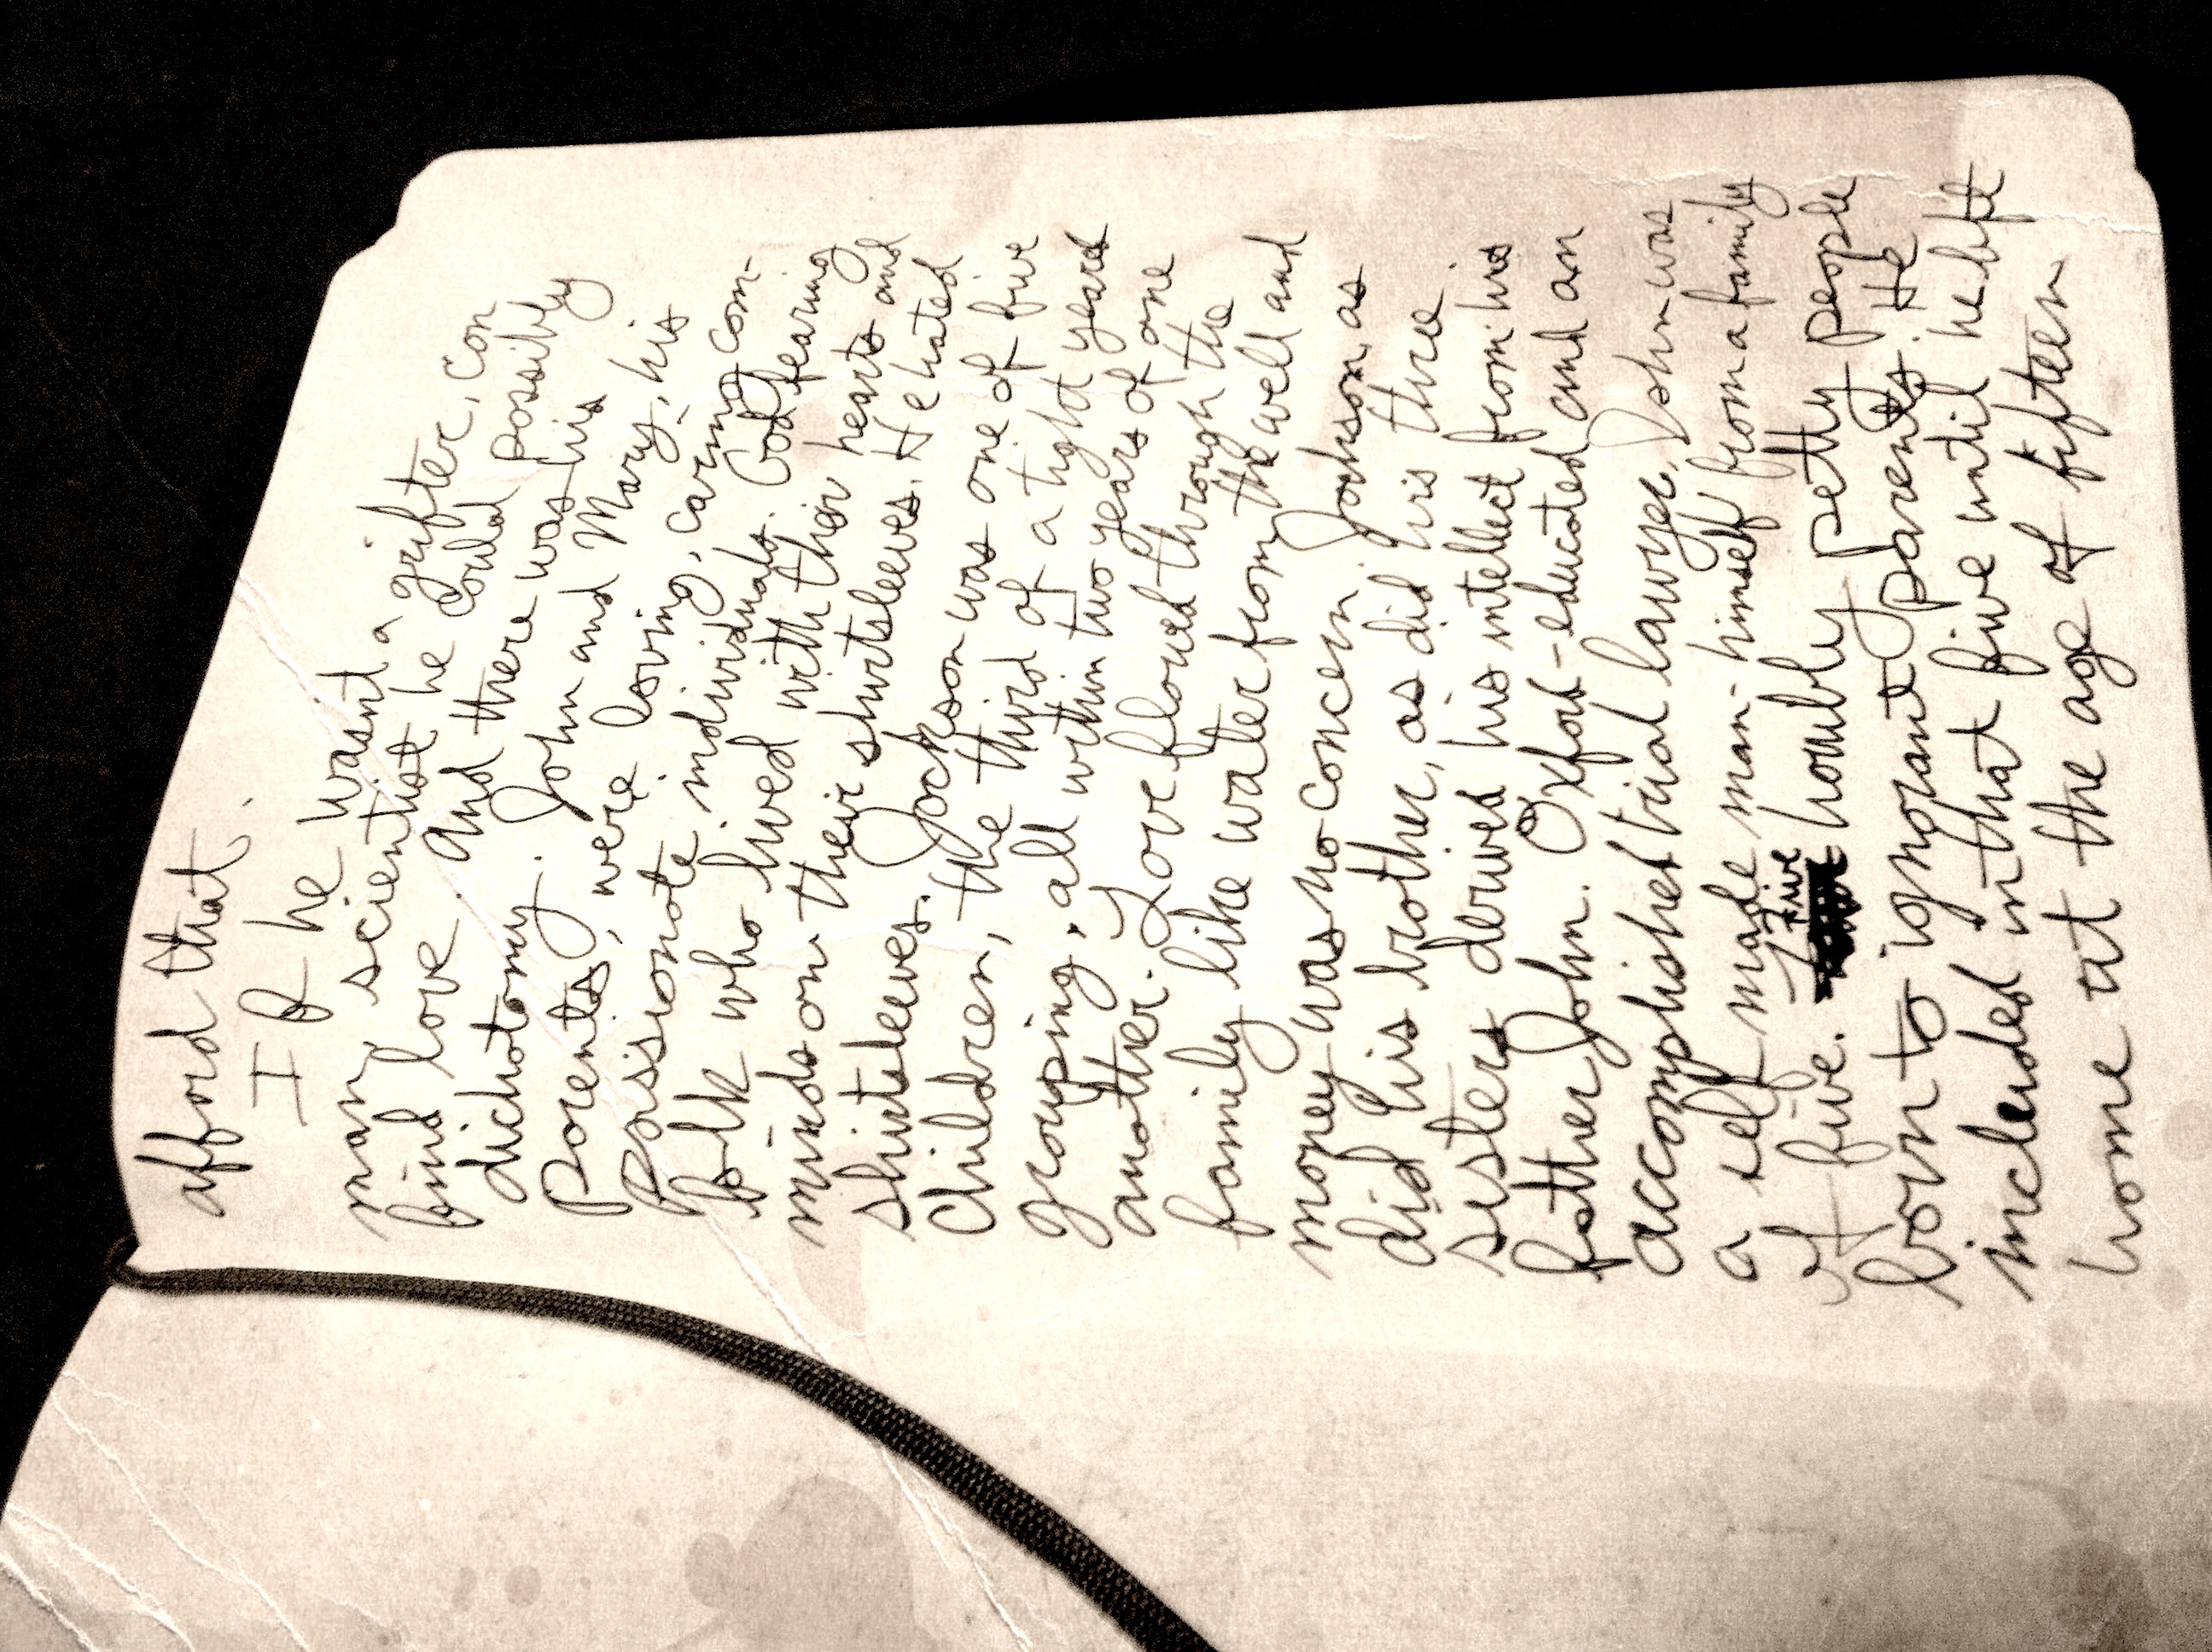 afford that.
If he wasn't a grifter, con
man, scientist he could possibly
find love. And there was his
dichotomy. John and Mary, his
Parents, were loving, caring com-
passionate individuals. God fearing
folk who lived with their hearts and
minds on their shirtsleeves. He hated
shirtsleeves. Jackson was one of five
Children, the third of a tight years
grouping, all within two years of one
another. Love flowed through the
family like water from the well and
money was no concern. Jackson, as
did his brother, as did his three
sisters derived his intellect from his
father John. Oxford-educated and an
accomplished trial lawyer, John was
a self made man - himself from a family
of five. five horribly petty people
born to ignorant parents. He
included in that five until he left
home at the age of fifteen